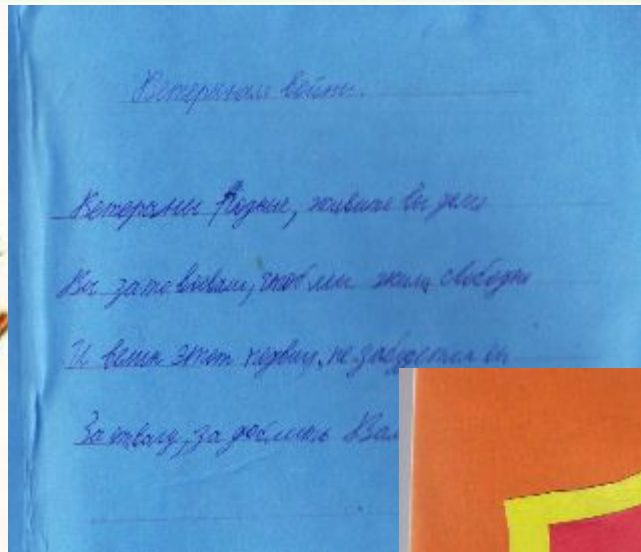 Ветеранам войны.
Ветераны Родные, живите вы
Вы за то воевали, чтоб мы жили свободно
И велик этот подвиг, не забудется он
За отвагу, за доблесть Вам